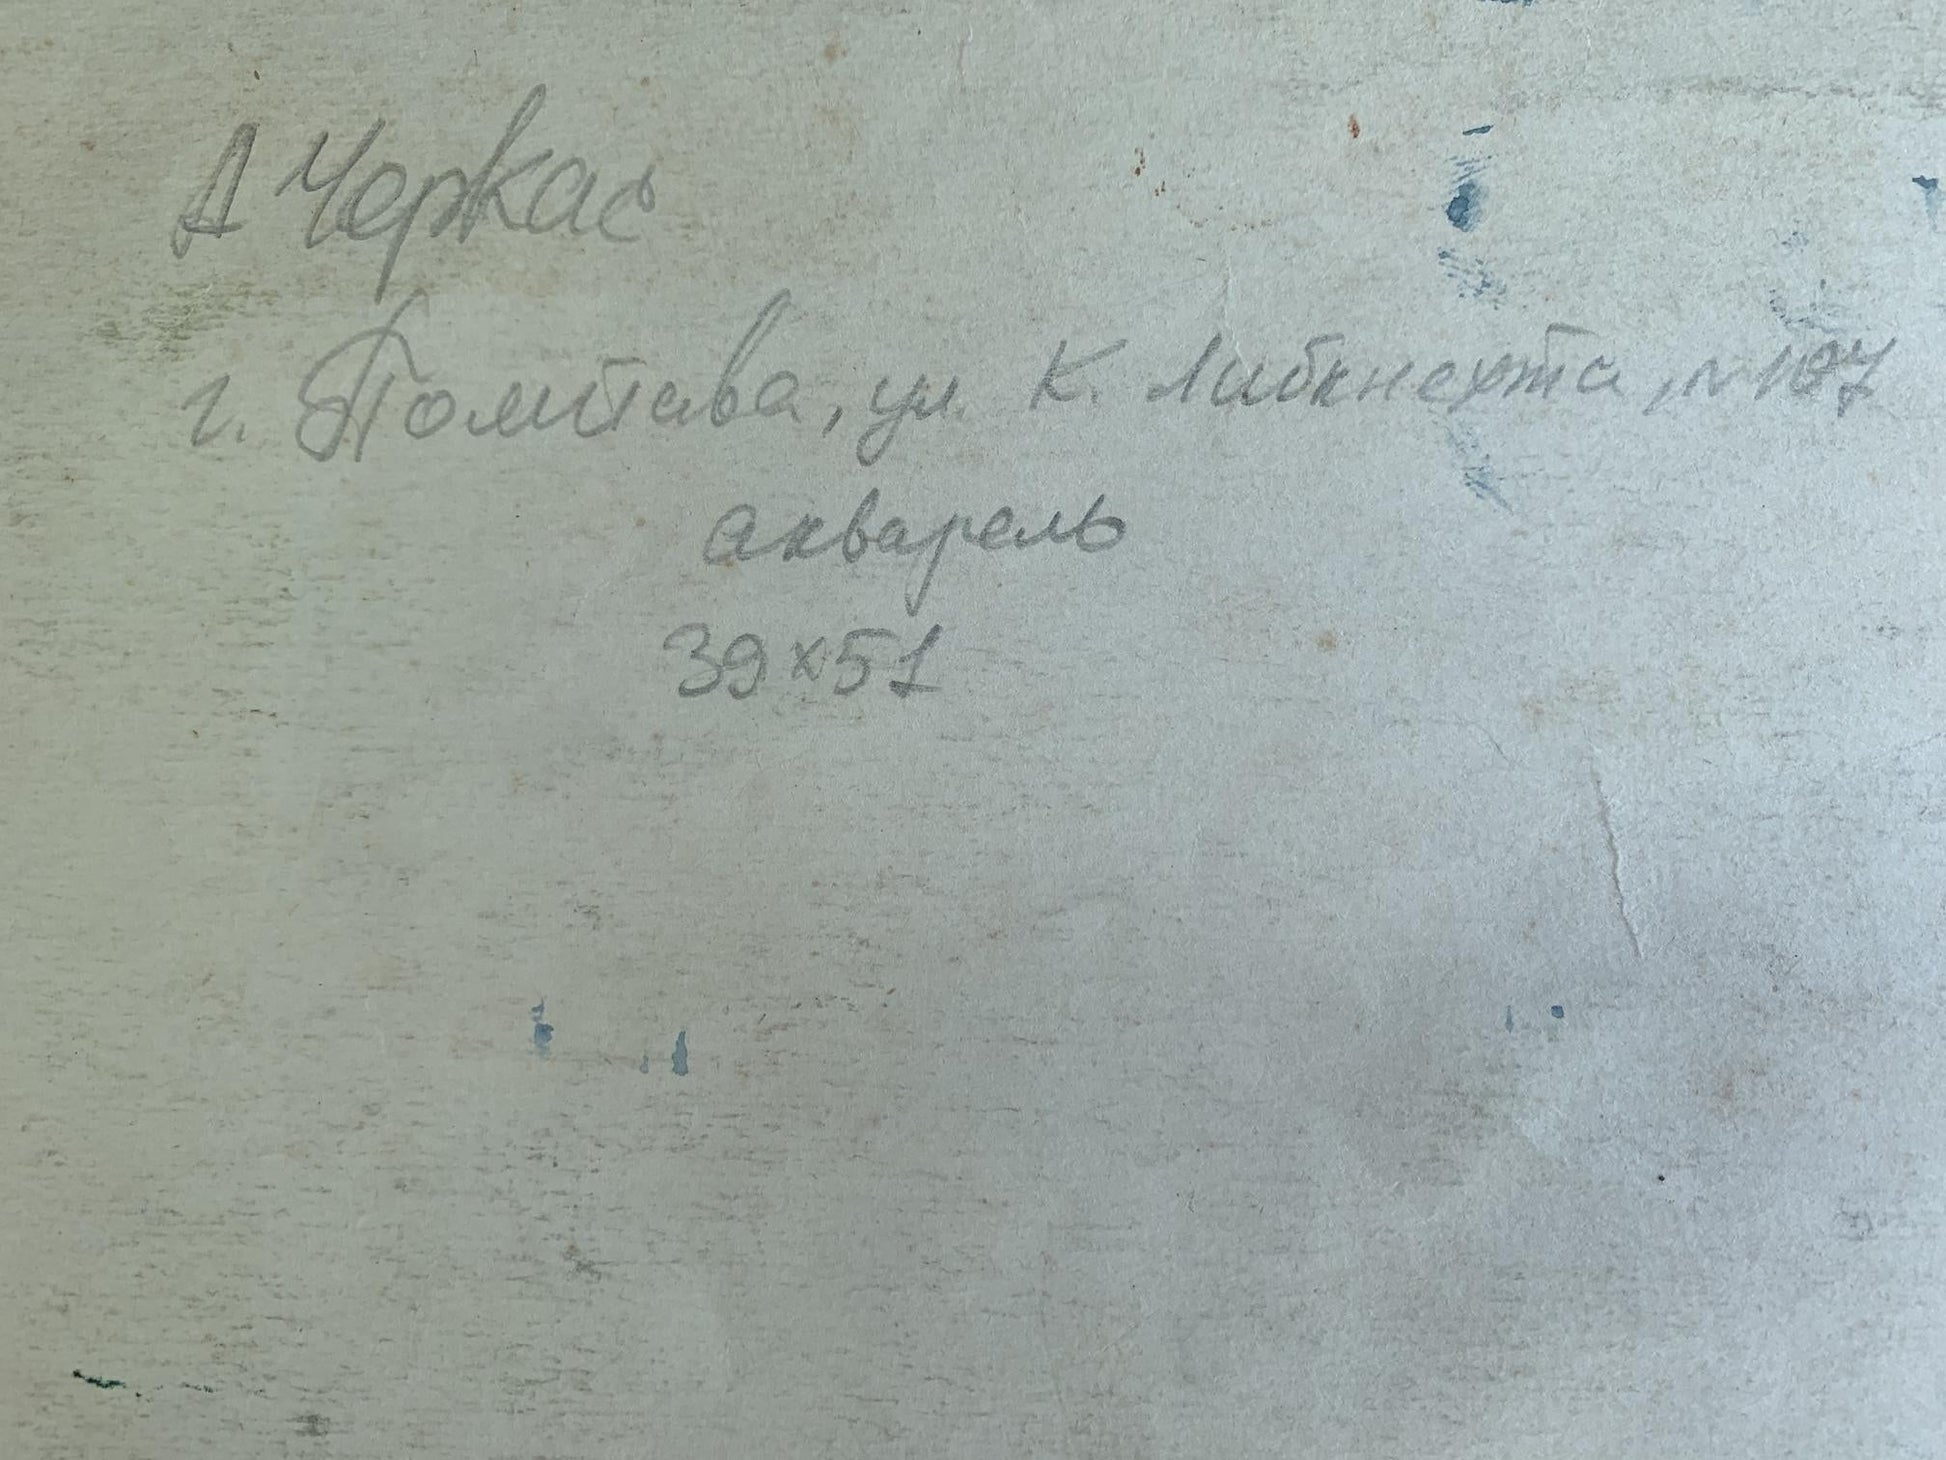 А Черкас
г. Полтава, ул. К. Либкнехта, № 107
акварель
39×51